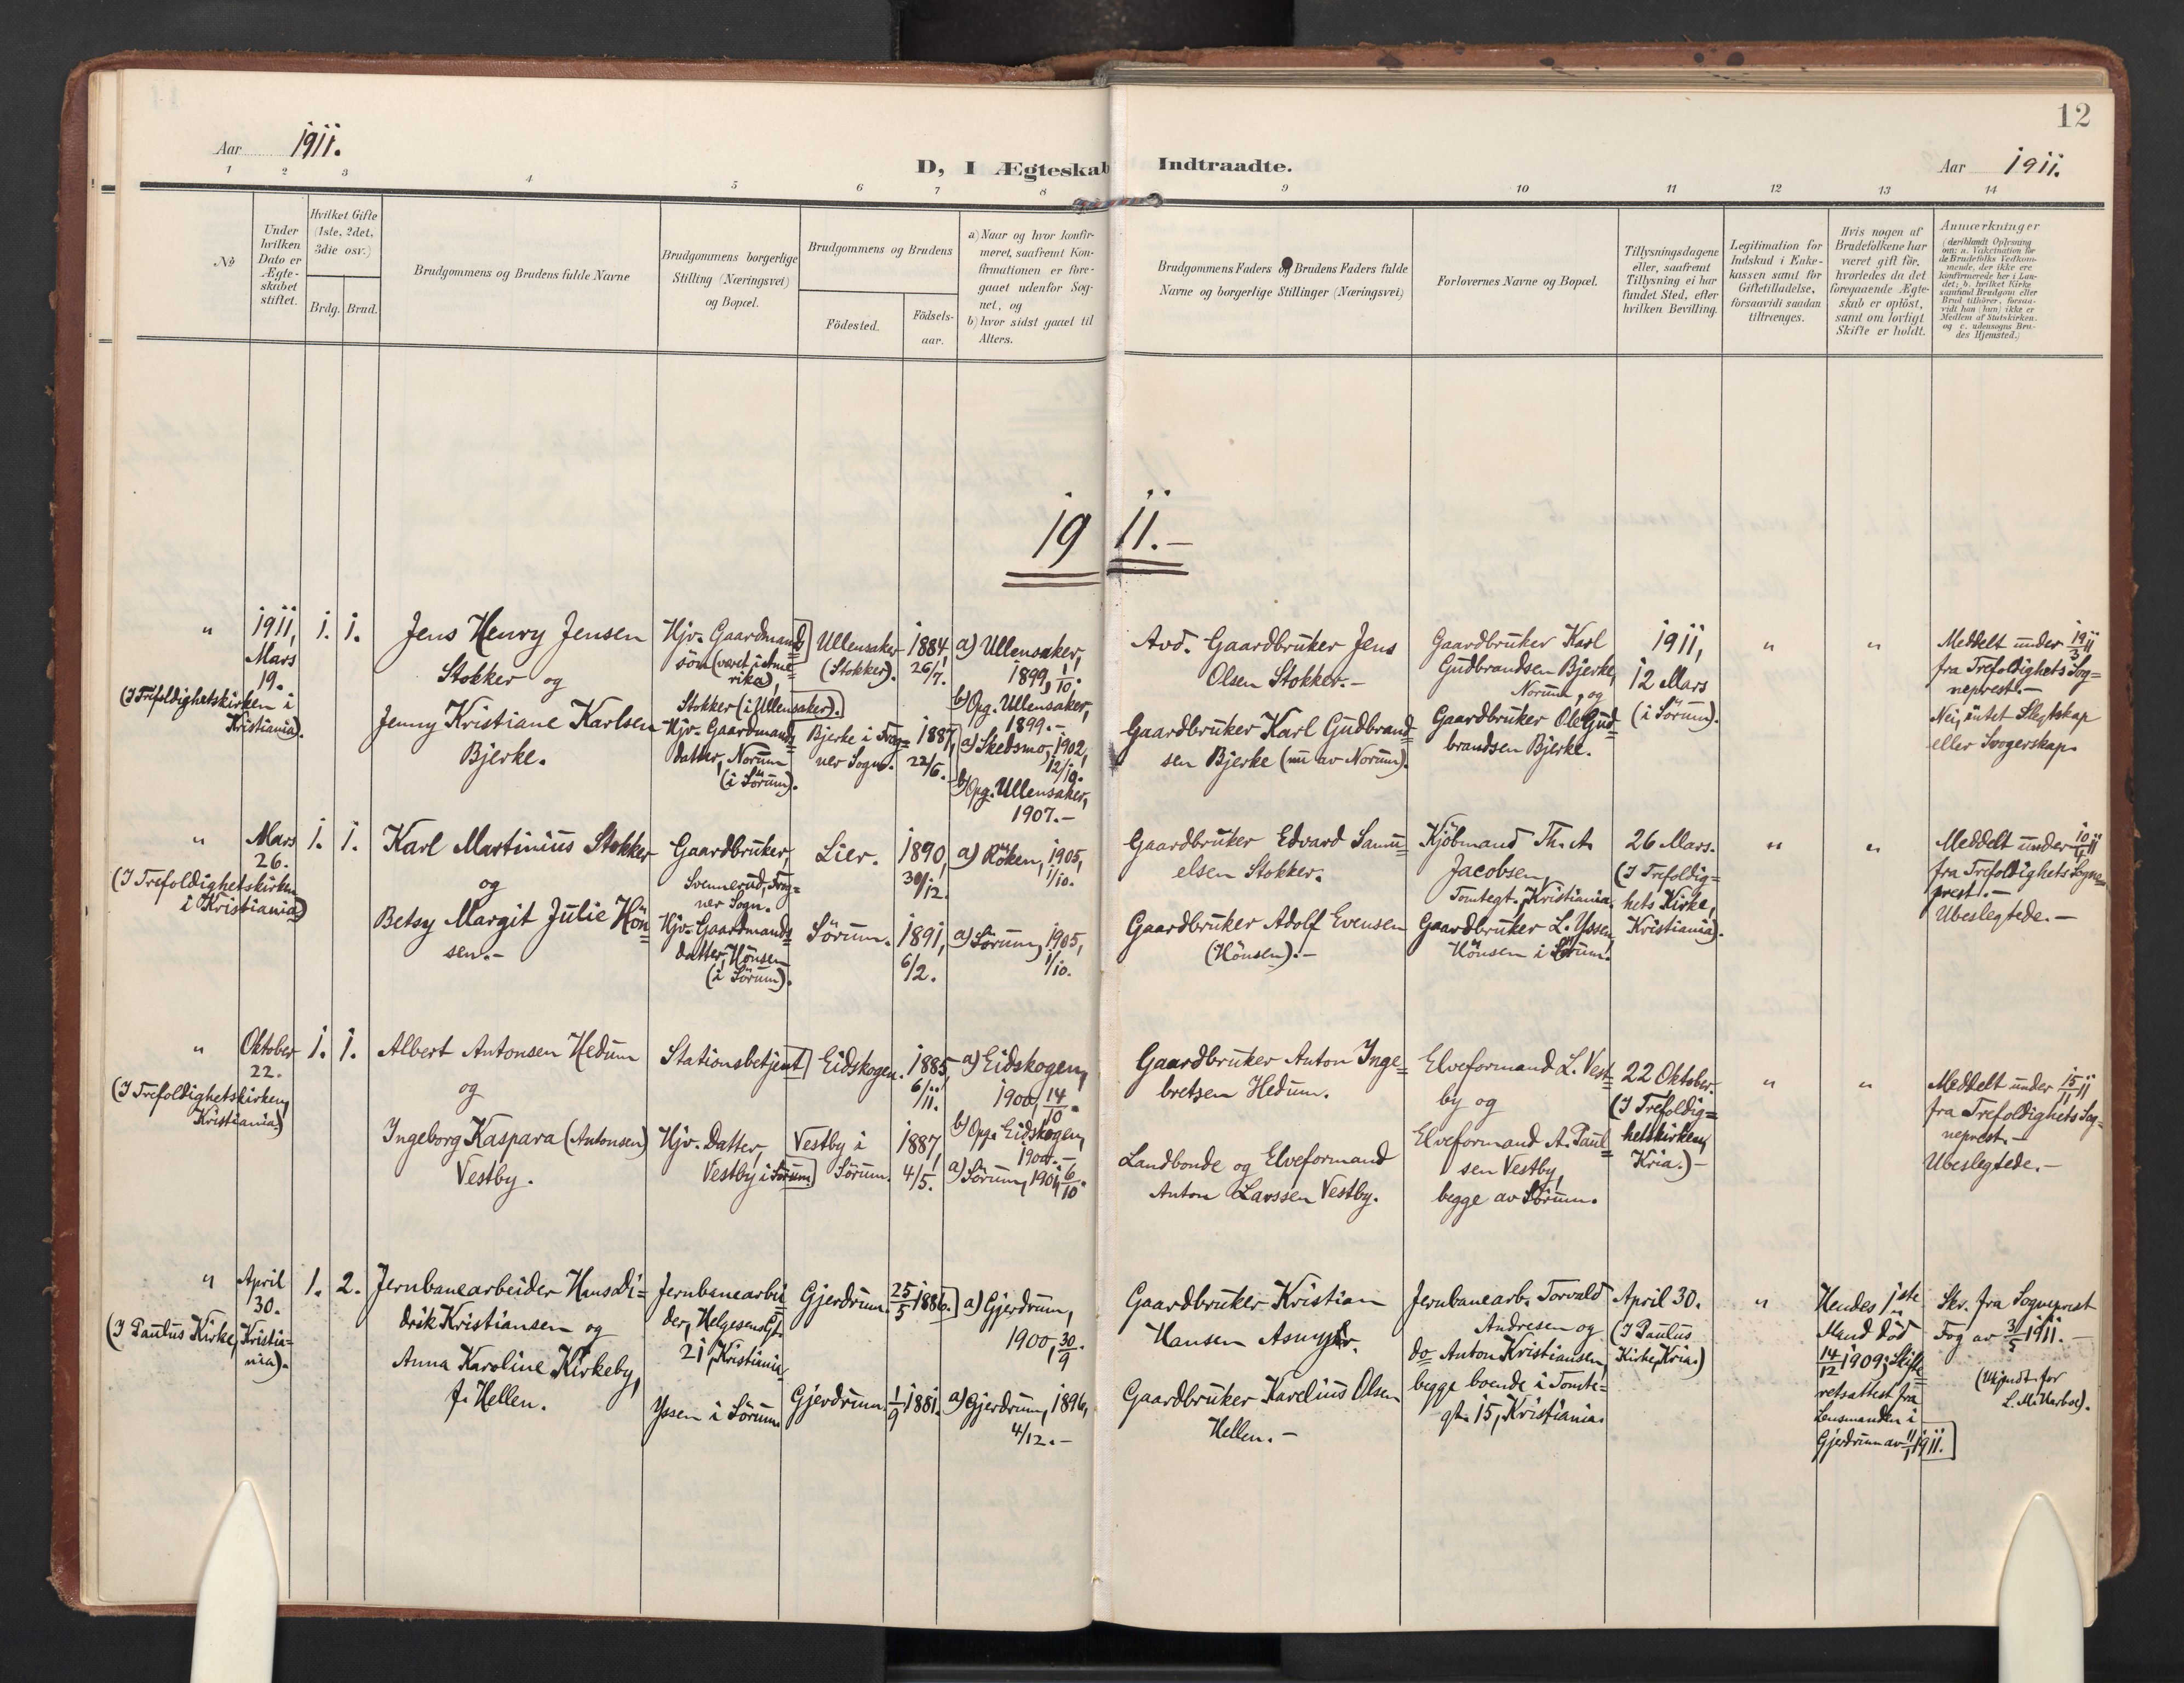 12
Aar 1911.
D, I Ægteskab Indtraadte.
Aar 1911.
1 2 3 4 5 6 7 8 9 10 11 12 13 14
No
Under
hvilken
Dato er
Ægte-
skabet
stiftet.
Hvilket Gifte
(1ste, 2det,
3die osv.)
Brdg. Brud.
Brudgommens og Brudens fulde Navne
Brudgommens borgerlige
Stilling (Næringsvei)
og Bopæl.
Brudgommens og Brudens
Födested.
Födsels-
aar.
a) Naar og hvor konfir-
meret, saafremt Kon-
firmationen er fore-
gaaet udenfor Sog-
net, og
b) hvor sidst gaaet til
Alters.
Brudgommens Faders og Brudens Faders fulde
Navne og borgerlige Stillinger (Næringsvei)
Forlovernes Navne og Bopæl.
Tillysningsdagene
eller, saafremt
Tillysning ei har
fundet Sted, efter
hvilken Bevilling.
Legitimation for
Indskud i Enke-
kassen samt for
Giftetilladelse,
forsaavidt saadan
tiltrænges.
Hvis nogen af
Brudefolkene har
været gift för,
hvorledes da det
foregaaende Ægte-
skab er oplöst,
samt om lovligt
Skifte er holdt.
Anmærkninger
(deriblandt Oplysning
om: a. Vakcination for
de Brudefolks Vedkom-
mende, der ikke ere
konfirmerede her i Lan-
det; b. hvilket Kirke-
samfund Brudgom eller
Brud tilhörer, forsaa-
vidt han (hun) ikke er
Medlem af Statskirken.
og c. udensogns Bru-
des Hjemsted.)
1911.-
" 1911,
Mars
19.
(I Trefoldighetskirken i
Kristiania).
1. 1.
Jens Henry Jensen
Stokker og
Jenny Kristiane Karlsen
Bjerke.
Hjv. Gaardmands=
sön (været i Ame=
rika),
Stokker (i Ullensaker).
Hjv. Gaardmands=
datter, Norum
(i Sörum).
Ullensaker
(Stokker).
Bjerke i Frog=
ner Sogn.
1884,
26/7.
1887,
22/6.
a) Ullensaker,
1899, 1/10.
b) Opg. Ullensaker,
1899.-
a) Skedsmo, 1902,
12/10.
b) Opg. Ullensaker,
1907.-
Avd. Gaardbruker Jens
Olsen Stokker.-
Gaardbruker Karl Gudbrand=
sen Bjerke (nu av Norum).
Gaardbruker Karl
Gudbrandsen Bjerke,
Norum, og
Gaardbruker Ole Gud=
brandsen Bjerke.
1911,
12 Mars
(i Sörum).
" "
Meddelt under 19/3 11
fra Trefoldighets Sog=
neprest.-
Nei, intet Slegtskap
eller Svogerskap.
" Mars
26.
(I Trefoldighetskirken
i Kristiania)
1. 1.
Karl Martinius Stokker
og
Betsy Margit Julie Hön=
sen.-
Gaardbruker,
Svennerud, Frog=
ner Sogn.
Hjv. Gaardmands=
datter, Hönsen
(i Sörum).
Lier.
Sörum.
1890,
30/12.
1891,
6/2.
a) Röken, 1905,
1/10.
a) Sörum, 1905,
1/10.
Gaardbruker Edvard Samu=
elsen Stokker.
Gaardbruker Adolf Evensen
(Hönsen).-
Kjöbmand Th. A.
Jacobsen,
Tomtegt., Kristiania.
Gaardbruker L. Yssen,
Hönsen i Sörum.
26 Mars.
(I Trefoldig=
hets Kirke,
Kristiania).
" "
Meddelt under
fra Trefoldighets Sogne=
prest.-
Ubeslegtede.-
" Oktober
22.
(I Trefoldighetskirken,
Kristiania)
1. 1.
Albert Antonsen Hedum
og
Ingeborg Kaspara (Antonsen)
Vestby.
Stationsbetjent
Hjv. Datter,
Vestby i Sörum
Eidskogen.
Vestby i
Sörum.
1885,
6/11.
1887,
4/5.
a) Eidskogen,
1900, 14/10.
b) Opg. Eidskogen,
1900.-
a) Sörum, 1901, 6/10.
Gaardbruker Anton Inge=
bretsen Hedum.
Landbonde og Elveformand
Anton Larssen Vestby.
Elveformand L. Vest=
by og
Elveformand A. Paul=
sen Vestby,
begge av Sörum.
22 Oktober.
(I Trefoldig=
hetskirken,
Kria.)-
" "
Meddelt under
fra Trefoldighets Sog=
neprest.-
Ubeslegtede.-
" April
30.
(I Paulus Kirke, Kristia=
nia).
1. 2.
Jernbanearbeider Hans Di=
drik Kristiansen og
Anna Karoline Kirkeby,
f. Hellen.
Jernbanearbei=
der, Helgesens Gt.
21, Kristiania
Yssen i Sörum
Gjerdrum.
Gjerdrum.
25/5 1886.
1/9 1881.
a) Gjerdrum,
1900, 30/9.
a) Gjerdrum, 1896,
4/12.-
Gaardbruker Kristian
Hansen Asmyhr.
Gaardbruker Karelius Olsen
Hellen.-
Jernbanearb. Torvald
Andresen og
do Anton Kristiansen,
begge boende i Tomte=
gt. 15, Kristiania.
April 30.
(I Paulus
Kirke, Kria.)
"
Hendes 1ste
Mand död
14/12 1909; Skifte=
retsattest fra
Lensmanden i
Gjerdrum av 1911.
Skr. fra Sogneprest
Fog av 3/5 1911.-